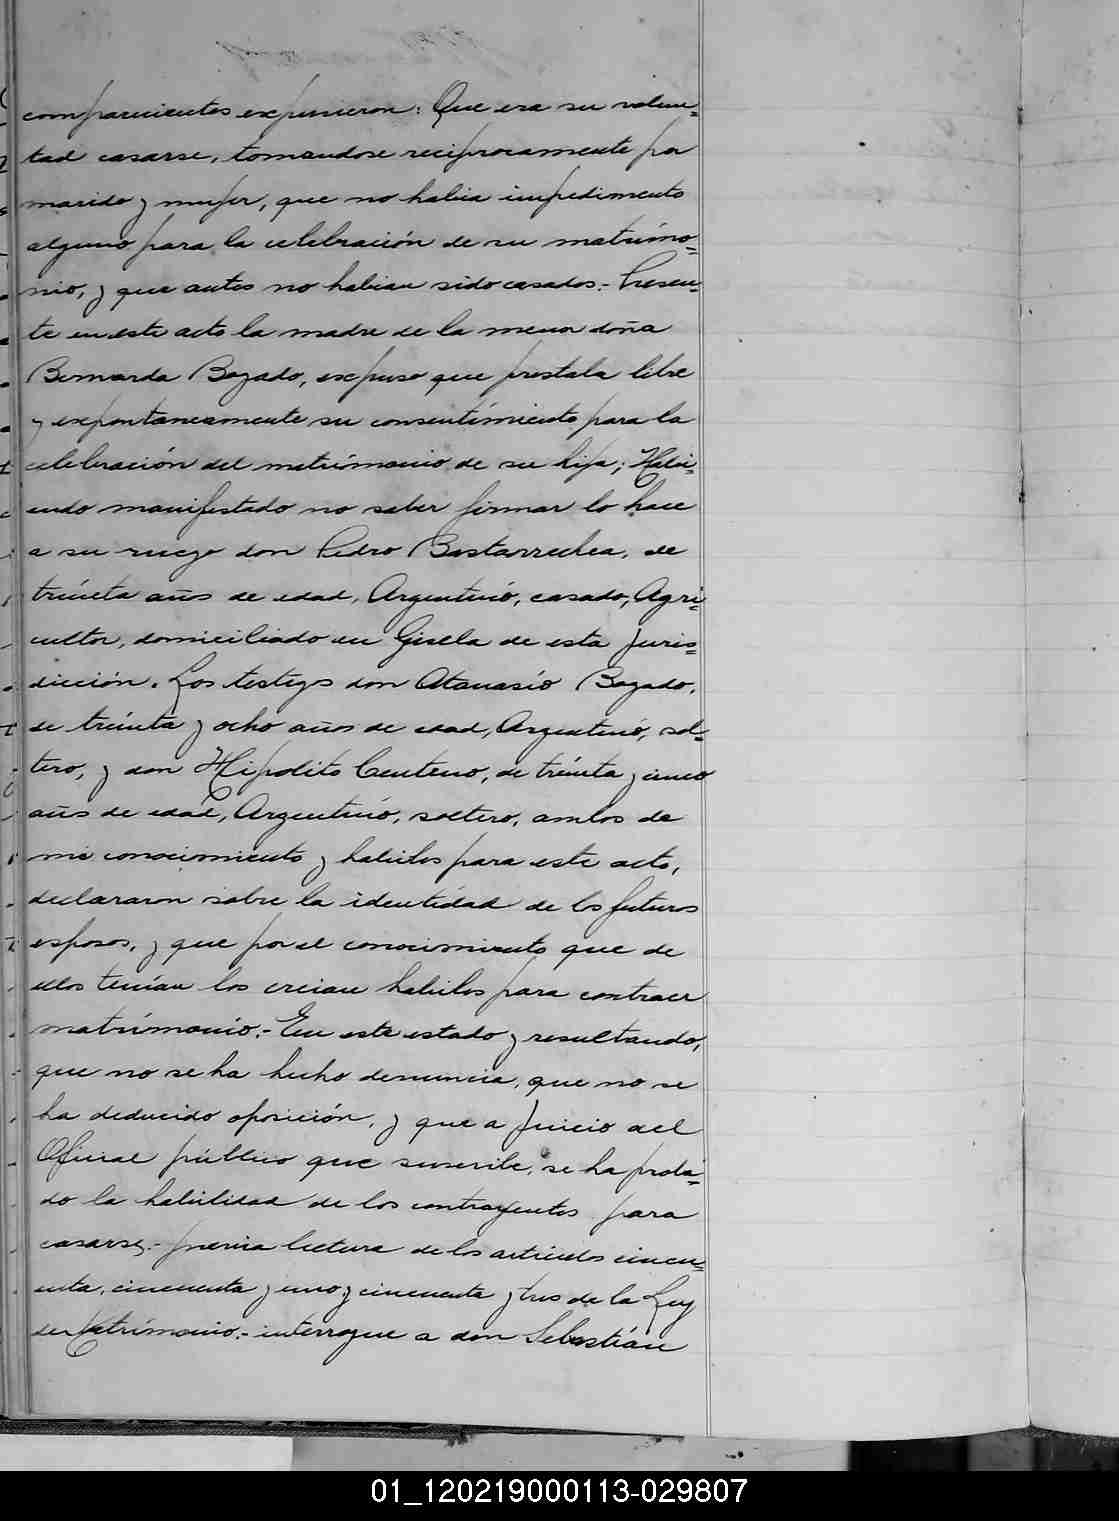 comparecientes expusieron: Que era su volun=
tad casarse, tomandose reciprocamente por
marido y mujer, que no habia impedimento
alguno para la celebración de su matrimo=
nio, y que antes no habian sido casados.- Presen=
te en este acto la madre de la menor doña
Bernarda Bazado, expuso que prestaba libre
y expontaneamente su consentimiento para la
celebración del matrimonio de su hija; Habi=
endo manifestado no saber firmar lo hace
a su ruego don Pedro Bastarrechea, de
treinta años de edad, Argentino, casado, Agri=
cultor, domiciliado en Gisela de esta juris=
dicción. Los testigos don Atanasio Bazado,
de treinta y ocho años de edad, Argentino, sol=
tero, y don Hipolito Centeno, de treinta y cinco
años de edad, Argentino, soltero, ambos de
mi conocimiento y habiles para este acto,
declararon sobre la identidad de los futuros
esposos, y que por el conocimiento que de
ellos tenian los creian habiles para contraer
matrimonio.- En este estado y resultando,
que no se ha hecho denuncia, que no se
ha deducido oposición, y que a juicio del
Oficial público que suscribe, se ha proba=
do la habilidad de los contrayentes para
casarse.- previa lectura de los articulos cincu=
enta, cincuenta y uno y cincuenta y tres de la Ley
de Matrimonio.- interrogue a don Sebastián
01_120219000113-029807